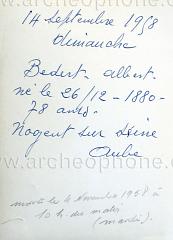 14 septembre 1958
dimanche
Bedert albert.
né le 26/12-1880-
78 ans.
Nogent sur Seine
Aube
mort le 4 novembre 1958 à
10 h. du matin
(mardi).
www.archeophone.org